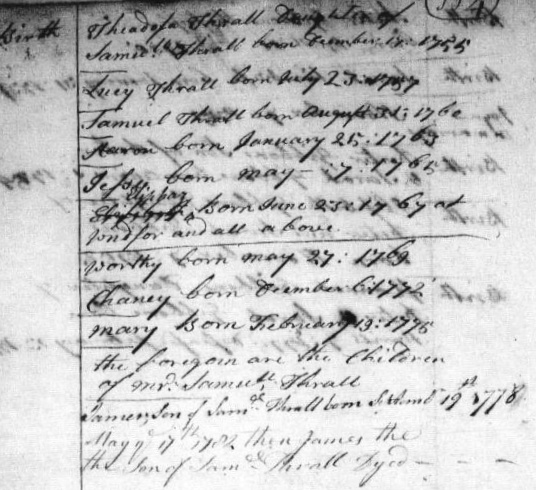 Birth
Theadosa Thrall Daughter of
Samuel Thrall born December 1755
Lucy Thrall born July 23: 1757
Samuel Thrall born August 31: 1760
Aaron born January 25: 1763
Jesse born may - :7: 1765
Eliphaz
Born June 23: 1767 at
windsor and all above
worthy born may 27: 1769
Chaney born December 6: 1772
mary Born February 19: 1775
the foregoin are the Children
of mr. Samuell Thrall
James, Son of Samll Thrall born Septembr 19th 1778
May ye 17th 1782 then James the
the Son of Samll Thrall Dyed - - -